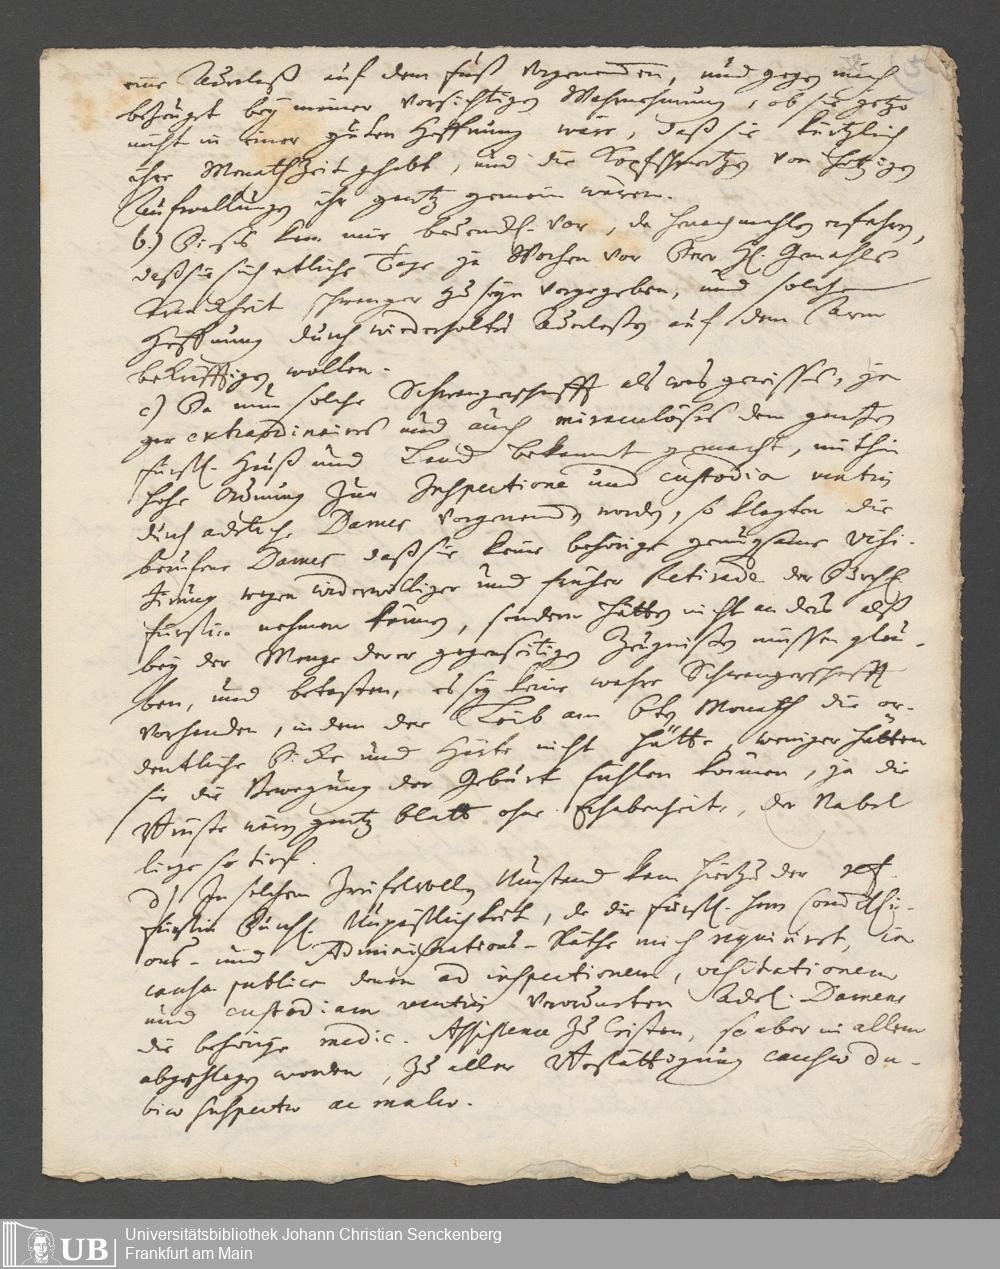 eine Aderlaß auf dem Fuß vorgenommen, und gegen mich
bezeugt bey meiner vorsichtigen Wahrnehmung, ob sie jetzo
nicht in einer guten Hoffnung wäre, daß sie kürtzlich
ihre Monathzeit gehabt, und die Kopfschmertzen von hitzigen
Aufwallungen ihr gantz gemein wären.
b.) Dieses kam mir vor, da hernachmahlen erfahren,
daß sie sich etliche Tage ja Wochen vor Dero H. Gemahls
Kranckheit schwanger zu seyn vorgegeben, und solche
Hoffnung durch wiederholtes Aderlaßen auf dem Arm
bekräfftigen wollen.
c) Da nun solche Schwangerschafft als was gewisses, ja
gar extraordinaires und auch miraculöses dem gantzen
fürstl. Hauß und Land bekannt gemacht, mithin
hohe Ordnung zur Inspectione und custodia ventris
durch adeliche Dames vorgenommen worden, so klagten die
berufene Dames daß sie keine behörige genugsame Visi-
tirung wegen widerwilliger und früher Retirade der Durchl.
Fürstin nehmen können, sondern hätten nicht anders alß
bey der Menge derer gegenseitigen Zeugnisten müssen glau-
ben, und betasten, es sey keine wahre Schwangerschafft
vorhanden, indem der Leib am 6ten Monath die or-
dentliche Dicke und Härte nicht hätte, weniger hätten
sie die Bewegung der Geburt fühlen können, ja die
Brüste wären gantz blatt ohne Erhabenheit, der Nabel
liege so tief.
d) In solchem Zweifelvollen Umstand kam hierzu der
Fürstin Durchl. Unpäßlichkeit, da die fürstl. Herrn Commissi-
ons- und Administrations-Räthe mich requiriret, in
causa publica denen ad inspectionem, visitationem
und custodiam ventris verordneten Adel. Damens
die behörige medic. Assistence zu leisten, so aber in allem
abgeschlagen worden, zu aller Bestättigung causae du-
biae suspectae ac malae.
Universitätsbibliothek Johann Christian Senckenberg
Frankfurt am Main
UB